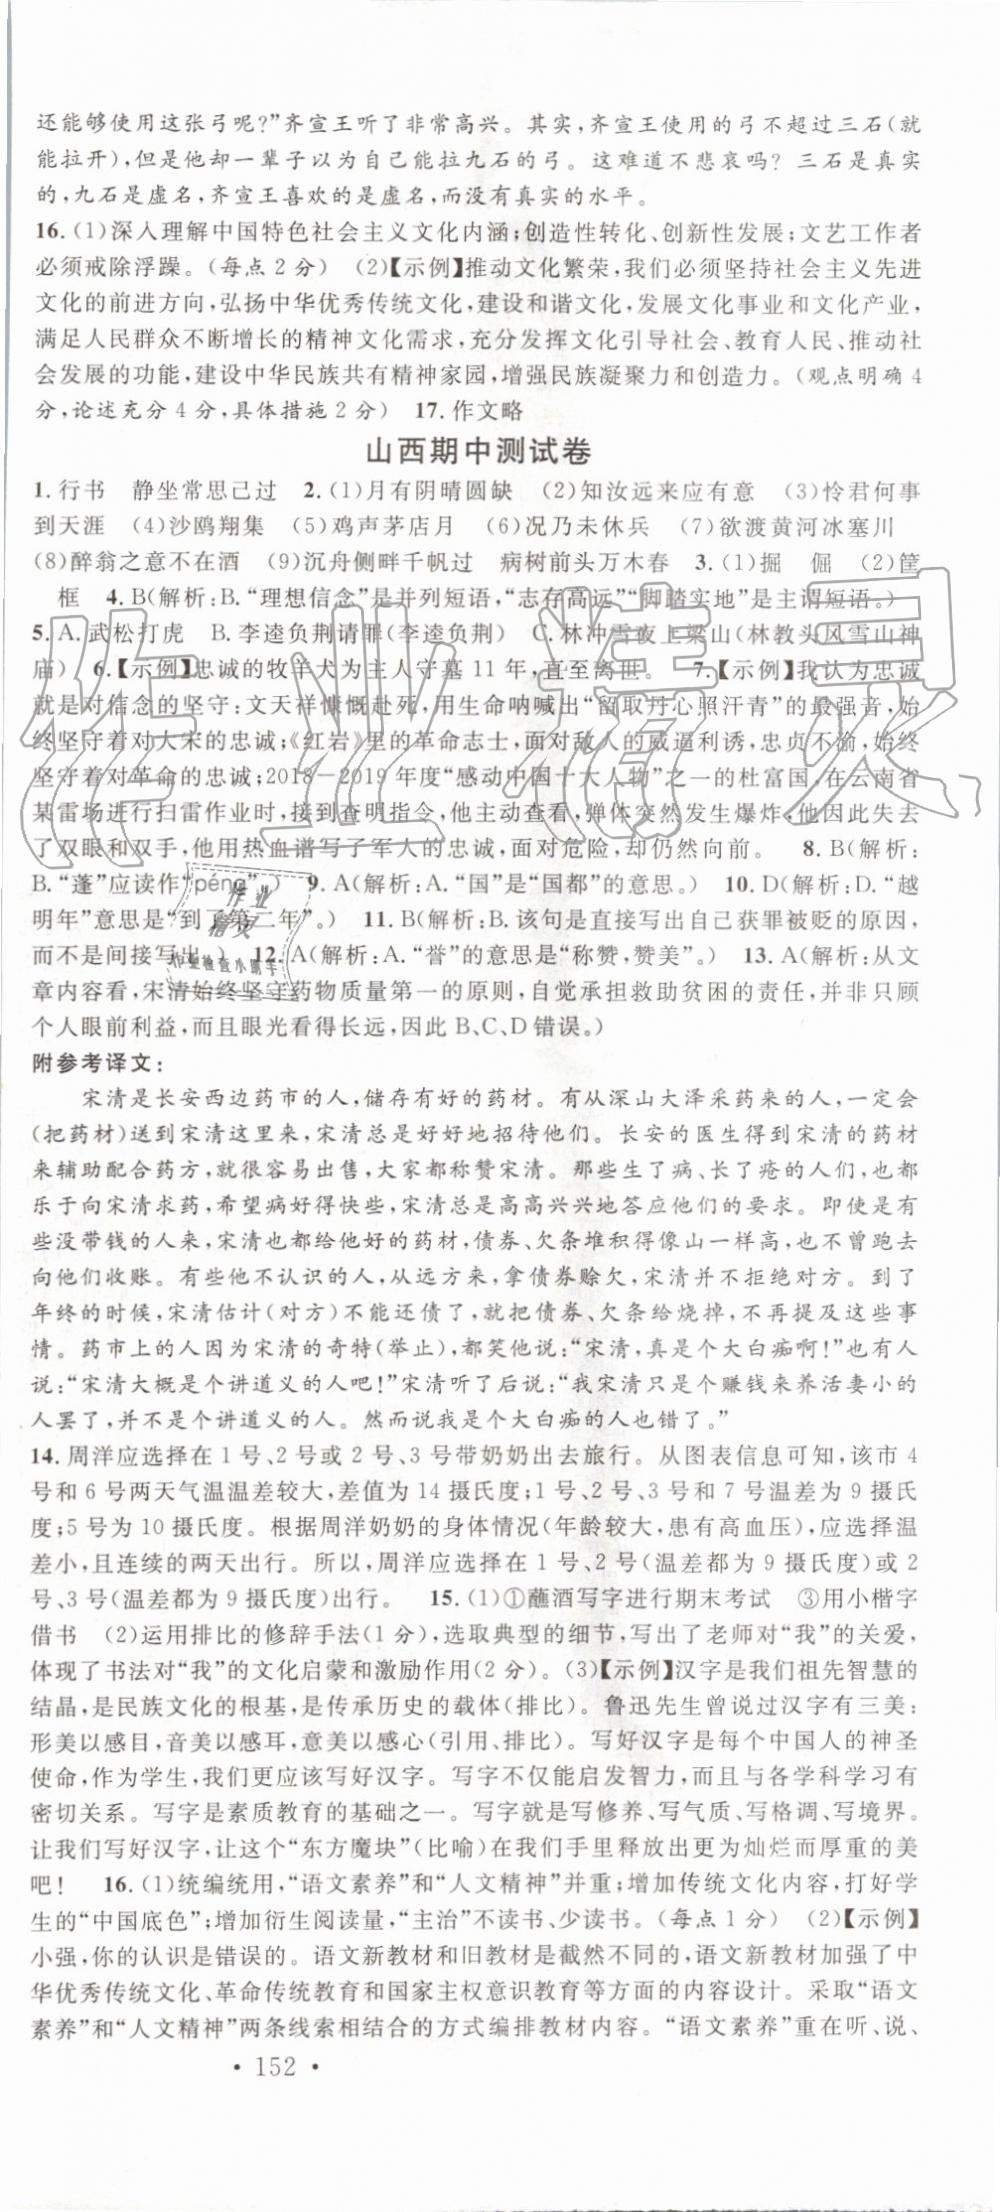 还能够使用这张弓呢?”齐宣王听了非常高兴。其实,齐宣王使用的弓不超过三石(就
能拉开),但是他却一辈子以为自己能拉九石的弓。这难道不悲哀吗?三石是真实
的,九石是虚名,齐宣王喜欢的是虚名,而没有真实的水平。
16.(1)深入理解中国特色社会主义文化内涵;创造性转化、创新性发展;文艺工作者
必须戒除浮躁。(每点2分) (2)【示例】推动文化繁荣,我们必须坚持社会主义先进
文化的前进方向,弘扬中华优秀传统文化,建设和谐文化,发展文化事业和文化产业,
满足人民群众不断增长的精神文化需求,充分发挥文化引导社会、教育人民、推动社
会发展的功能,建设中华民族共有精神家园,增强民族凝聚力和创造力。(观点明确4
分,论述充分4分,具体措施2分) 17.作文略
山西期中测试卷
1.行书 静坐常思己过 2.(1)月有阴晴圆缺 (2)知汝远来应有意 (3)怜君何事
到天涯 (4)沙鸥翔集 (5)鸡声茅店月 (6)况乃未休兵 (7)欲渡黄河冰塞川
(8)醉翁之意不在酒 (9)沉舟侧畔千帆过 病树前头万木春 3.(1)掘 倔 (2)筐
框 4.B(解析:B.“理想信念”是并列短语,“志存高远”“脚踏实地”是主谓短语。)
5.A.武松打虎 B.李逵负荆请罪(李逵负荆) C.林冲雪夜上梁山(林教头风雪山神
庙) 6.【示例】忠诚的牧羊犬为主人守墓11年,直至离世。 7.【示例】我认为忠诚
就是对信念的坚守:文天祥慷慨赴死,用生命呐喊出“留取丹心照汗青”的最强音,始
终坚守着对大宋的忠诚;《红岩》里的革命志士,面对敌人的威逼利诱,忠贞不渝,始终
坚守着对革命的忠诚;2018—2019年度“感动中国十大人物”之一的杜富国,在云南省
某雷场进行扫雷作业时,接到查明指令,他主动查看,弹体突然发生爆炸,他因此失去
了双眼和双手,他用热血谱写了军人的忠诚,面对危险,却仍然向前。 8.B(解析:
B.“蓬”应读作“péng”。) 9.A(解析:A.“国”是“国都”的意思。) 10.D(解析:D.“越
明年”意思是“到了第二年”。) 11.B(解析:B.该句是直接写出自己获罪被贬的原因,
而不是间接写出。) 12.A(解析:A.“誉”的意思是“称赞,赞美”。) 13.A(解析:从文
章内容看,宋清始终坚守药物质量第一的原则,自觉承担救助贫困的责任,并非只顾
个人眼前利益,而且眼光看得长远,因此B、C、D错误。)
附参考译文:
宋清是长安西边药市的人,储存有好的药材。有从深山大泽采药来的人,一定会
(把药材)送到宋清这里来,宋清总是好好地招待他们。长安的医生得到宋清的药材
来辅助配合药方,就很容易出售,大家都称赞宋清。那些生了病、长了疮的人们,也都
乐于向宋清求药,希望病好得快些,宋清总是高高兴兴地答应他们的要求。即使是有
些没带钱的人来,宋清也都给他好的药材,债券、欠条堆积得像山一样高,也不曾跑去
向他们收账。有些他不认识的人,从远方来,拿债券赊欠,宋清并不拒绝对方。到了
年终的时候,宋清估计(对方)不能还债了,就把债券、欠条给烧掉,不再提及这些事
情。药市上的人因为宋清的奇特(举止),都笑他说:“宋清,真是个大白痴啊!”也有人
说:“宋清大概是个讲道义的人吧!”宋清听了后说:“我宋清只是个赚钱来养活妻小的
人罢了,并不是个讲道义的人。然而说我是个大白痴的人也错了。”
14.周洋应选择在1号、2号或2号、3号带奶奶出去旅行。从图表信息可知,该市4
号和6号两天气温温差较大,差值为14摄氏度;1号、2号、3号和7号为9摄氏
度;5号为10摄氏度。根据周洋奶奶的身体情况(年龄较大,患有高血压),应选择温
差小,且连续的两天出行。所以,周洋应选择在1号、2号(温差都为9摄氏度)或2
号、3号(温差都为9摄氏度)出行。 15.(1)①蘸酒写字进行期末考试 ③用小楷字
借书 (2)运用排比的修辞手法(1分),选取典型的细节,写出了老师对“我”的关爱,
体现了书法对“我”的文化启蒙和激励作用(2分)。(3)【示例】汉字是我们祖先智慧的
结晶,是民族文化的根基,是传承历史的载体(排比)。鲁迅先生曾说过汉字有三美:
形美以感目,音美以感耳,意美以感心(引用、排比)。写好汉字是每个中国人的神圣
使命,作为学生,我们更应该写好汉字。写字不仅能启发智力,而且与各学科学习有
密切关系。写字是素质教育的基础之一。写字就是写修养、写气质、写格调、写境界。
让我们写好汉字,让这个“东方魔块”(比喻)在我们手里释放出更为灿烂而厚重的美
吧! 16.(1)统编统用,“语文素养”和“人文精神”并重;增加传统文化内容,打好学
生的“中国底色”;增加衍生阅读量,“主治”不读书、少读书。(每点1分) (2)【示例】
小强,你的认识是错误的。语文新教材和旧教材是截然不同的,语文新教材加强了中
华优秀传统文化、革命传统教育和国家主权意识教育等方面的内容设计。采取“语文
素养”和“人文精神”两条线索相结合的方式编排教材内容。“语文素养”重在听、说、
• 152 •
作业精灵
作业
精灵
作业检查小助手